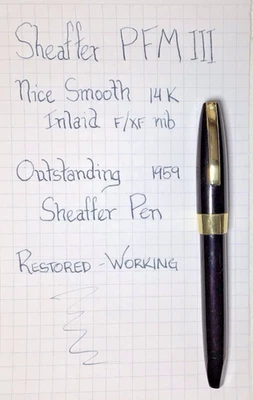 Sheaffer PFM III
Nice Smooth 14K
Inlaid F/XF nib
Outstanding 1959
Sheaffer Pen
RESTORED - WORKING